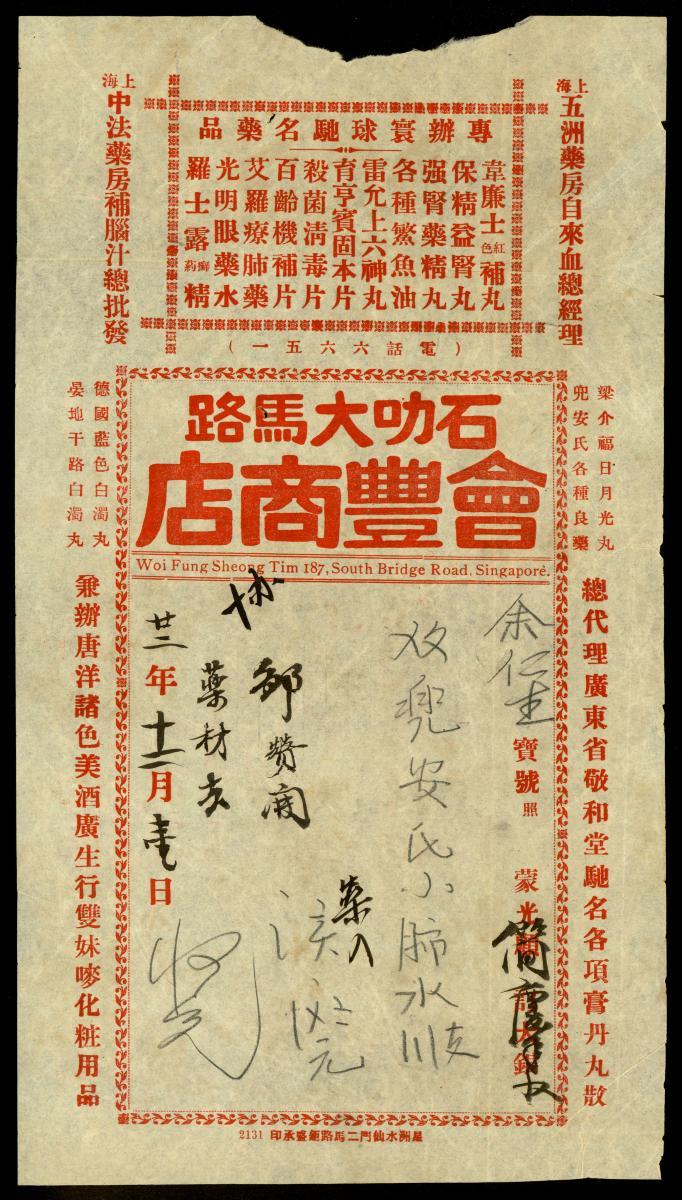 上海
五洲藥房自來血總經理
上海
中法藥房補腦汁總批發
專辦寰球馳名藥品
韋廉士紅色補丸
保精益腎丸
强腎藥精丸
各種鰵魚油
雷允上六神丸
育亨賓固本片
殺菌淸毒片
百齡機補片
艾羅療肺藥
光明眼藥水
羅士露癬葯精
（電話六六五一）
梁介福日月光丸
兜安氏各種良藥
德國藍色白濁丸
晏地干路白濁丸
石叻大馬路
會豐商店
Woi Fung Sheong Tim 187, South Bridge Road, Singapore.
總代理廣東省敬和堂馳名各項膏丹丸散
兼辦唐洋諸色美酒廣生行雙妹嘜化粧用品
余仁生
寶號照
蒙光
兜安氏小肺水
藥材
廿二年十二月壹日
星洲水仙門二馬路鉅盛承印 2131